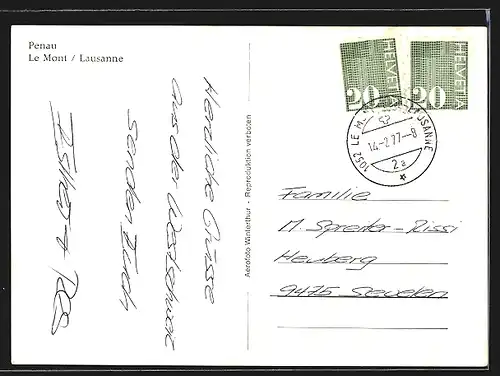 Penau
Le Mont / Lausanne
Herzliche Grüsse
aus der Westschweiz
senden Euch
Aerofoto Winterthur - Reproduktion verboten
HELVETIA
20
HELVETIA
20
1052 LE M LAUSANNE
14.-2.77-8
2a
Familie
M. Spreiter-Rissi
Heuberg
9475 Sevelen